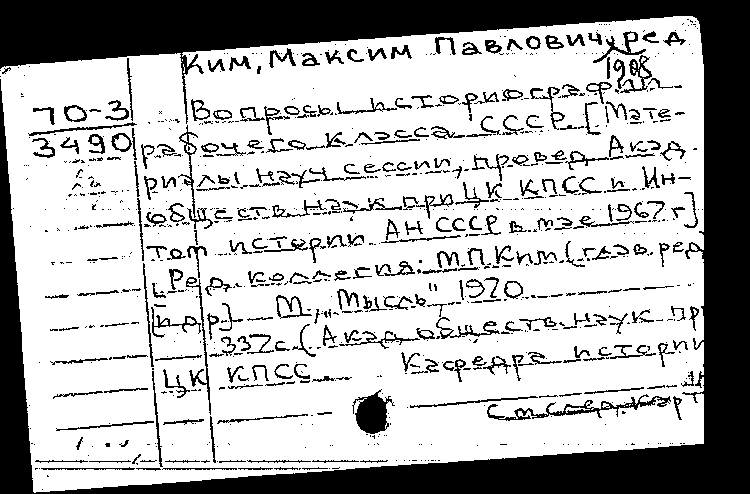 Ким, Максим Павлович, ред
1908
70-3
3490
Вопросы историографии
рабочего класса СССР. [Мате-
риалы науч сессии, провед. Акад.
обществ. наук при ЦК КПСС и Ин-
том истории АН СССР в мае 1967 г]
[Ред. коллегия: М.П.Ким (глав. ред)
и др.] М., "Мысль", 1970
337с. (Акад. обществ. наук пр
ЦК КПСС. Кафедра истории
См след. карт